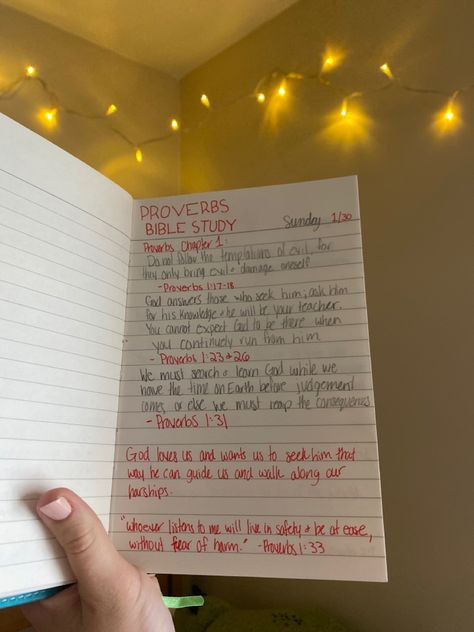 PROVERBS
BIBLE STUDY
Sunday 1/30
Proverbs Chapter 1:
Do not follow the temptations of evil, for
they only bring evil + damage oneself
- Proverbs 1:17-18
God answers those who seek him; ask him
for his knowledge & he will be your teacher.
You cannot expect God to be there when
you continuely run from him.
- Proverbs 1:23 & 26
We must search & learn God while we
have the time on Earth before judgement
comes, or else we must reap the consequences
- Proverbs 1:31
God loves us and wants us to seek him that
way he can guide us and walk along our
harships.
"whoever listens to me will live in safety & be at ease,
without fear of harm." - Proverbs 1:33